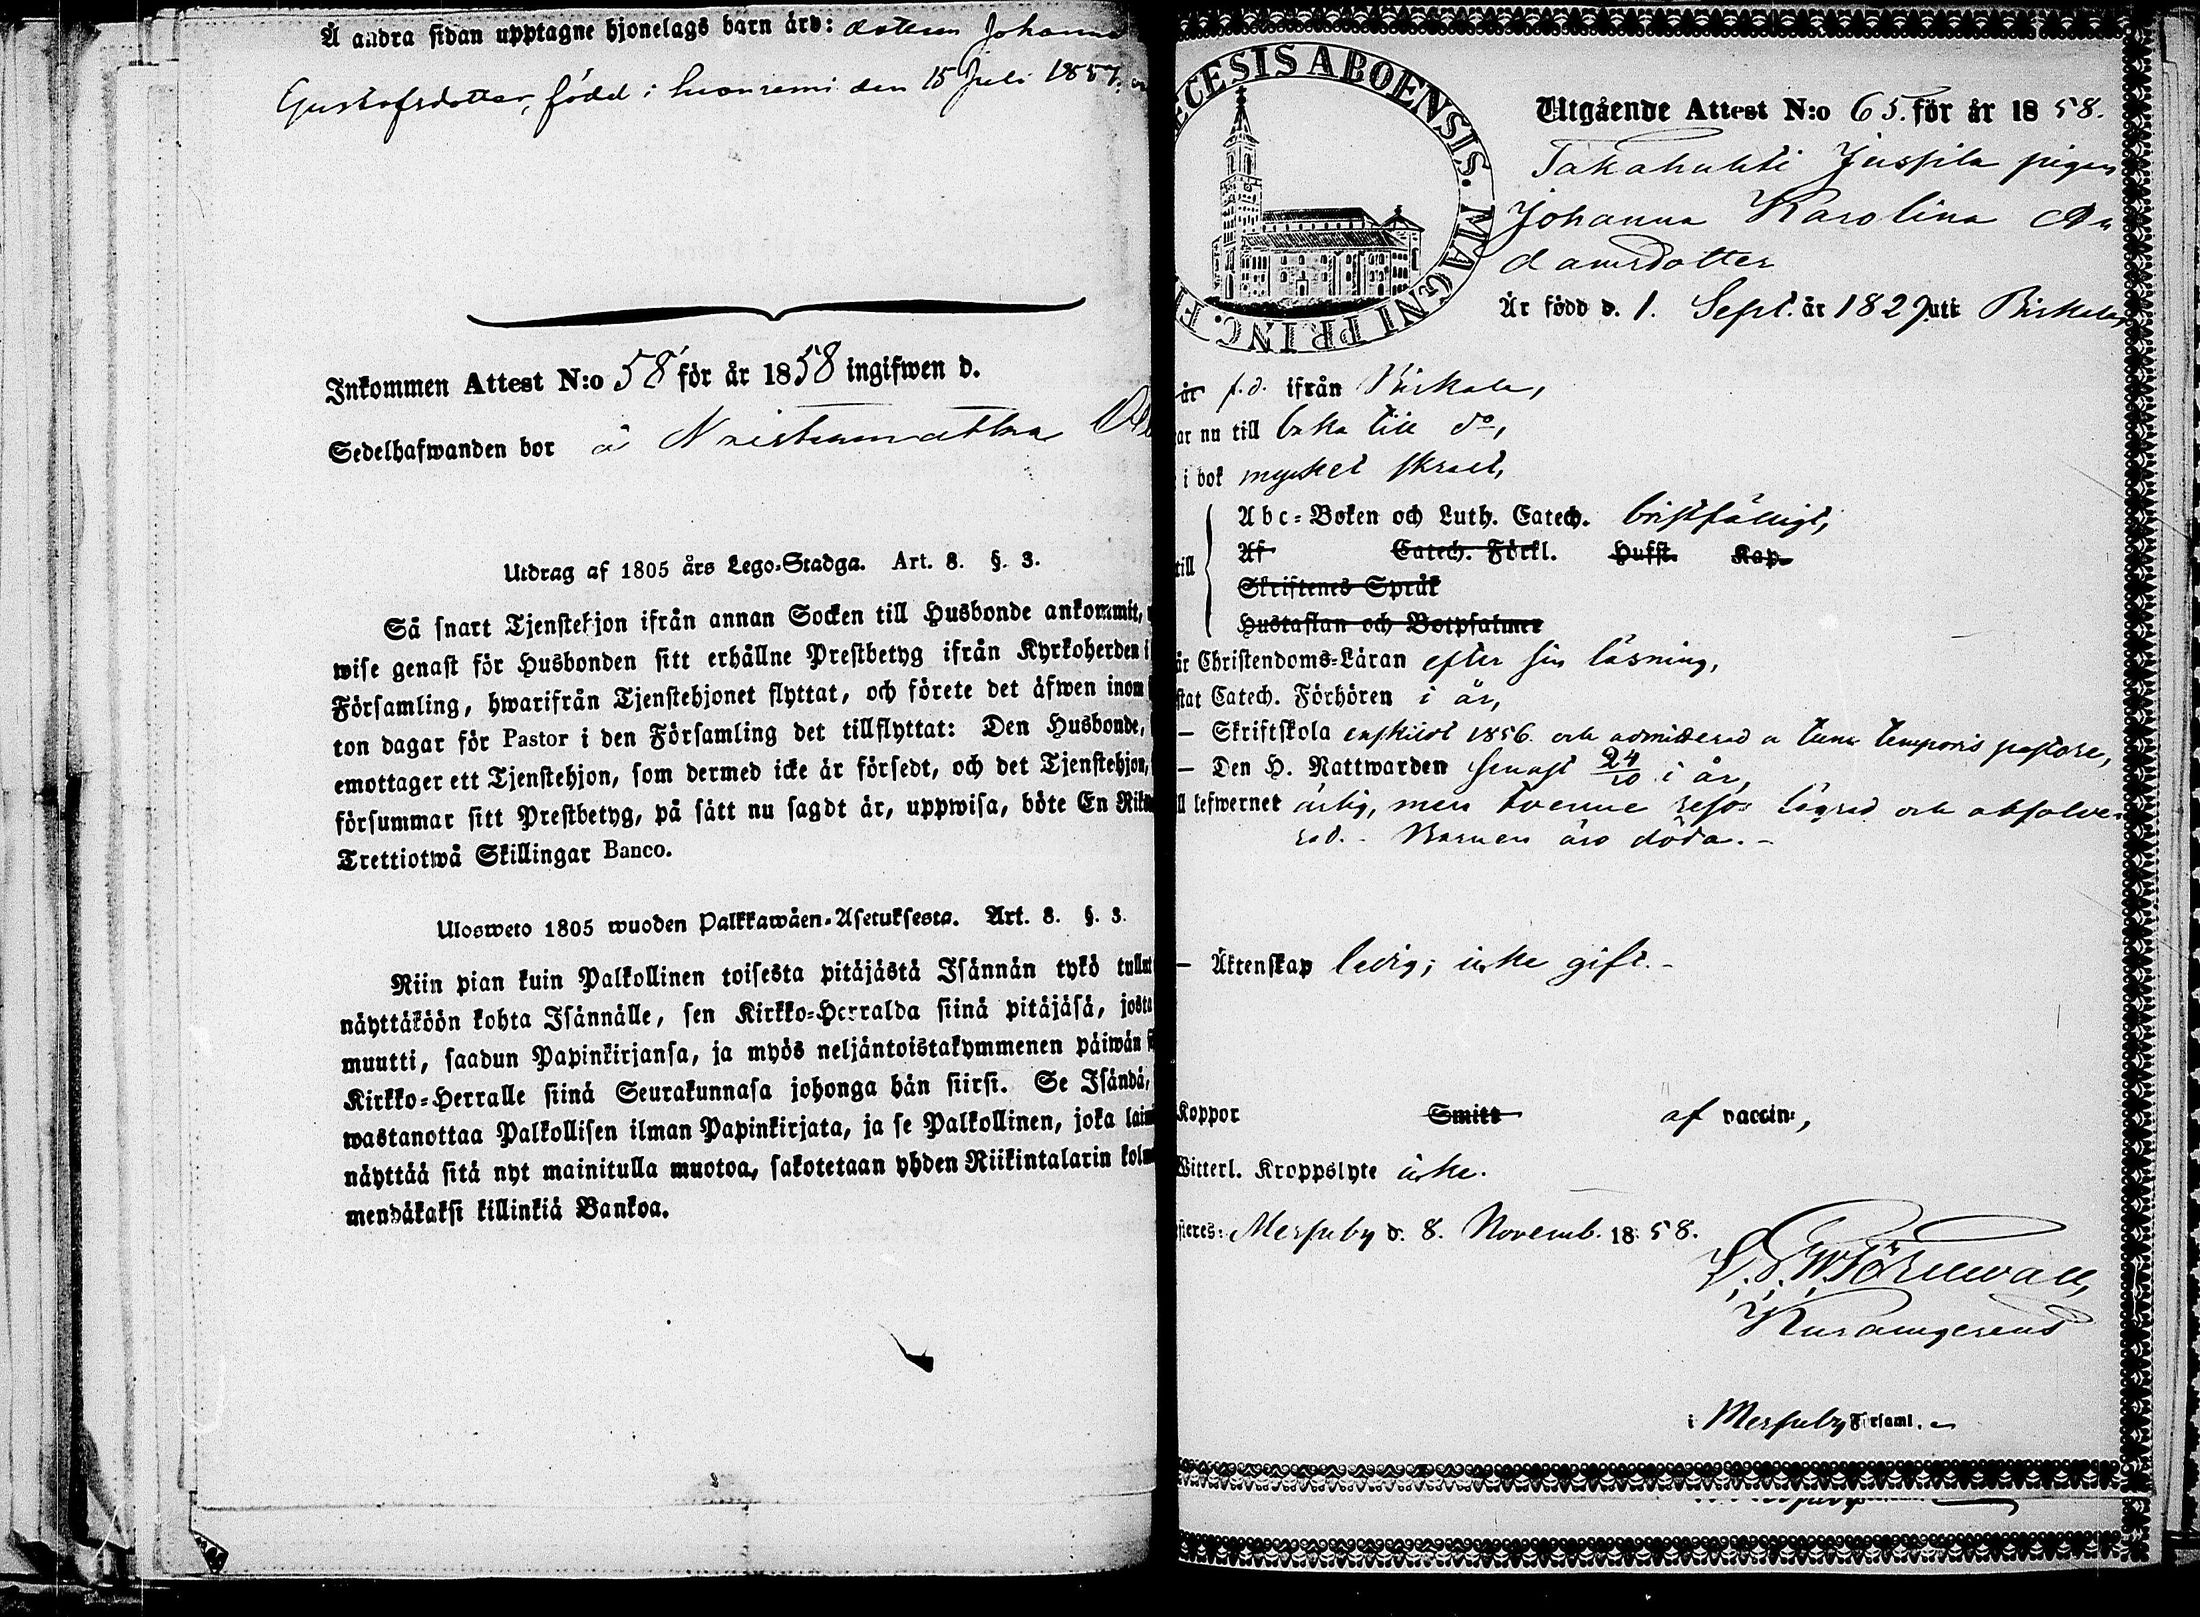 Å andra sidan upptagne hjonelags barn äro: dottern Johanna
Gustafsdotter, född i Messukylä den 15 Juli 1857.
Inkommen Attest N:o 58 för år 1858 ingifwen d.
Sedelhafwanden bor å
Utdrag af 1805 års Lego-Stadga. Art. 8. §. 3.
Så snart Tjenstehjon ifrån annan Socken till Husbonde ankommit,
wise genast för Husbonden sitt erhållne Prestbetyg ifrån Kyrkoherden i
Församling, hwarifrån Tjenstehjonet flyttat, och förete det äfwen inom
ton dagar för Pastor i den Församling det tillflyttat: Den Husbonde,
emottager ett Tjenstehjon, som dermed icke är försedt, och det Tjenstehjon,
försummar sitt Prestbetyg, på sätt nu sagdt är, uppwisa, böte En Riks
Trettiotwå Skillingar Banco.
Ulosweto 1805 wuoden Palkkawäen-Asetuksesta. Art. 8. §. 3.
Niin pian kuin Palkollinen toisesta pitäjästä Isännän tykö tullut
näyttäköön kohta Isännälle, sen Kirkko-Herralda siinä pitäjäsä, josta
muutti, saadun Papinkirjansa, ja myös neljäntoistakymmenen päiwän s
Kirkko-Herralle siinä Seurakunnasa johonga hän siirsi. Se Isändä,
wastanottaa Palkollisen ilman Papinkirjata, ja se Palkollinen, joka laim
näyttää sitä nyt mainitulla muotoa, sakotetaan yhden Riikintalarin kolm
mendäkaksi killinkiä Bankoa.
ECESIS ABOENSIS. MAGNI PRINC. F
Utgående Attest N:o 65. för år 1858.
Takahuhti Jussila pigan
Johanna Karolina A
damsdotter
Är född d. 1. Sept. år 1827 uti Birkala,
är f.d. ifrån Birkala,
ar nu till baka till do,
i bok mycket skralt,
till
Abc-Boken och Luth. Catech. bristfälligt,
Af Catech. Förkl. Husst. Kap.
Skriftenes Språk
Hustaflan och Botpsalmer
är Christendoms-Läran efter sin läsning,
stat Catech. Förhören i år,
— Skriftskola enskildt 1856 och admitterad a tunc temporis pastore,
— Den H. Nattwarden senast 24/10 i år,
ll lefwernet ärlig, men tvenne resor lägrad och absolve-
rad. - Barnen äro döda. -
— Äktenskap ledig; icke gift. -
Koppor Smitt af vaccin,
Witterl. Kroppslyte icke.
steres: Messuby d. 8. Novemb. 1858.
Kuramgerens
i Messuby Församl.